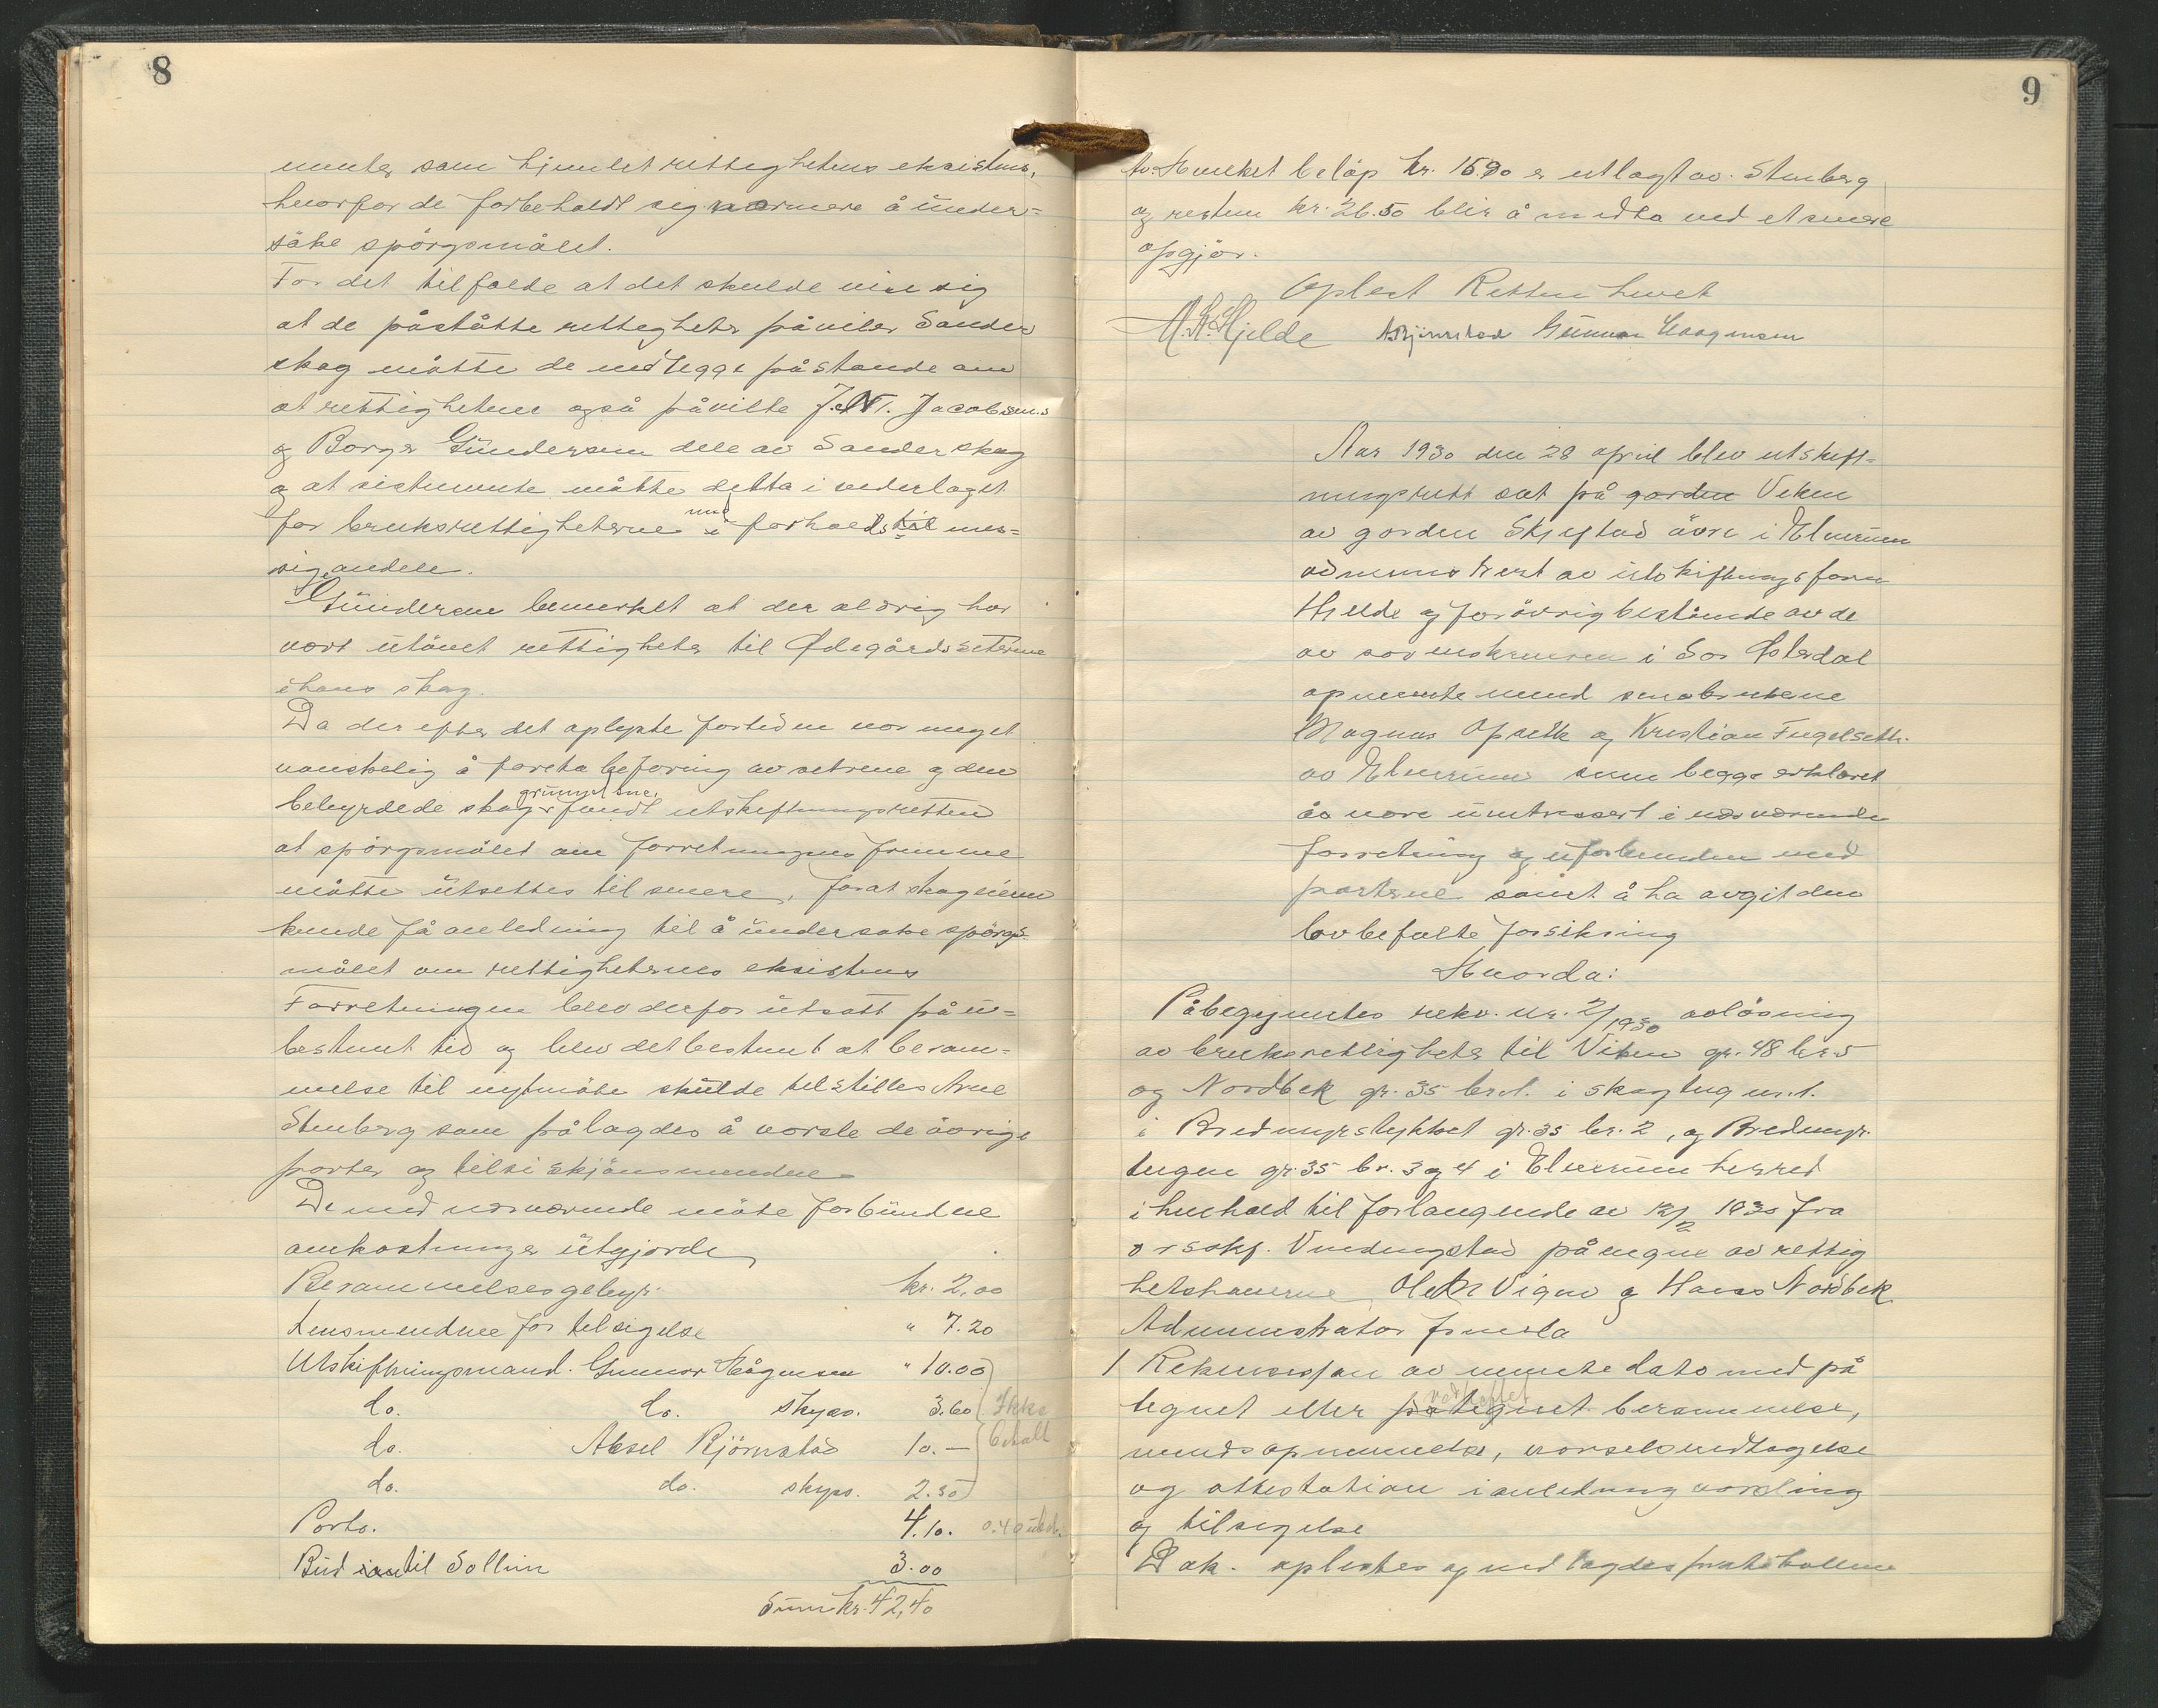 8
menter som hjemlet rettighetens eksistens,
hvorfor de forbeholdt sig nærmere å under=
søke spörgsmålet.
For det tilfælde at det skulde vise sig
at de påståtte rettigheter påviler Sander
skog måtte de nedlegge påstande om
at rettighetene også påvilte J. N. Jacobsens
og Borger Gündersen dele av Sanderskog
og at sistnevnte måtte delta i vederlaget
for bruksrettigheterne i med forholds til mes=
sig andele.
Gündersen bemerket at der aldrig har
vært utövet rettigheter til Ödegårdssetrene
i hans skog.
Da der efter det oplyste for tiden var meget
vanskelig å foreta befaring av setrene og den
behyrdede skoggrunn fandt utskiftningsretten
at spörgsmålet om forretningens fremme
måtte utsettes til senere, forat skogeierne
kunde få anledning til å undersøke spörgs-
målet om rettighetenes eksistens
Forretningen blev derfor utsatt på u=
bestemt tid og blev det bestemt at beram=
melse til nyt möte skulde tilstilles Arne
Stenberg som pålagdes å varsle de övrige
parter og tilsi skjönsmendene
De med nærværende möte forbundne
omkostninger utgjorde
Berammelsesgebyr kr. 2,00
Lensmendene for tilsigelse " 7.20
Utskiftningsmand. Gunnar Hågensen " 10.00
do. do. skyss. 3.60 Ikke
do. Aksel Björnstad 10.— betalt
do. do. skyss. 2.50
Porto. 4.10. 0.40
Bud til Sollien 3.00
Sum kr. 42,40
9
beløp kr. 15.90 er utlagt av Stenberg
og resten kr. 26.50 blir å medta ved et senere
opgjör.
Oplest Retten hevet
A. K. Hjelde A. Björnstad Gunnar Haagensen
Aar 1930 den 28 april blev utskift=
ningsrett sat på garden Veken
av gorden Skjefstad övre i Elverum
administrert av utskiftningsform
Hjelde og forövrig bestående av de
av sorenskriveren i Sør Østerdal
opnevnte menn småbrukerne
Magnus Opseth og Kristian Fugelseth
av Elverum som begge erklæret
å være uintressert i nærværende
forretning og uforbunden med
parterne samt å ha avgit den
lovbefalte forsikring
Hvorda:
Påbegyntes rekv. nr. 2/1930 avlösning
av bruksrettigheter til Viken gr. 48 br. 5
og Nordbek gr. 35 br. 1. i skogteig m.1.
i Bredmyrstykket gr. 35 br. 2, og Bredmyr-
teigen gr. 35 br. 3 og 4 i Elverum herred
i henhold til forlangende av 12/2 1930 fra
o r sakf. Vindingstad på vegne av rettig
hetshaverne Ole M Vigen og Hans Nordbek
Administrator fremla
1 Rekvisisjon av nevnte dato med på
tegnet eller på vedheftet tegnet berammelse,
mendsopnevnelse, varselsmottagelse
og attestation i anledning varsling
og tilsigelse
Dok. oplestes og vedlagdes protokollen